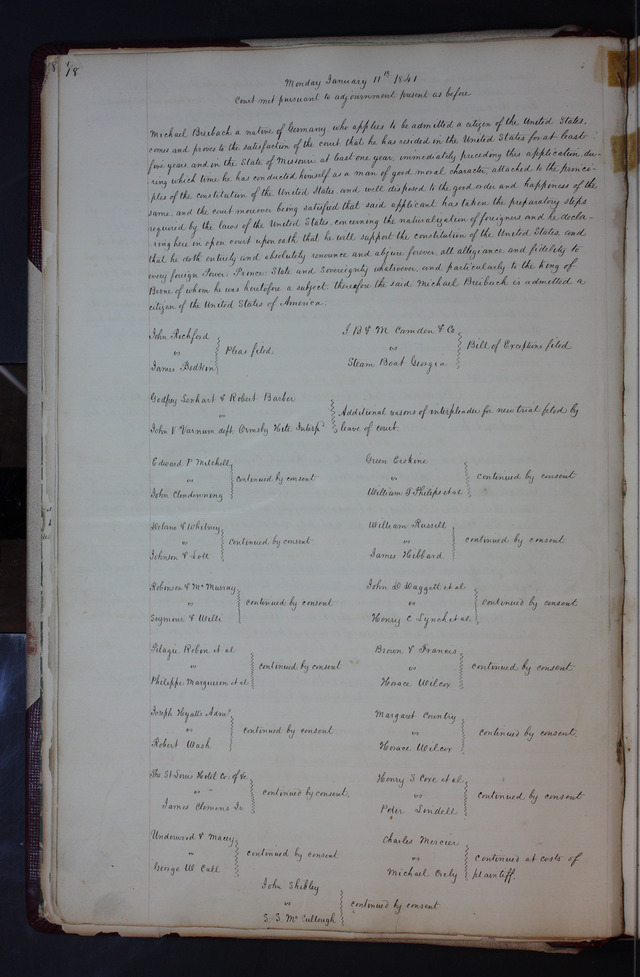 78
Monday January 11th 1841
Court met pursuant to adjournment present as before
Michael Breibach a native of Germany who applies to be admitted a citizen of the United States,
comes and proves to the satisfaction of the court that he has resided in the United States for at least
five years, and in the State of Missouri at least one year, immediately preceding this application, du-
ring which time he has conducted himself as a man of good moral character, attached to the princi-
ples of the constitution of the United States, and well disposed to the good order and happiness of the
same, and the court moreover being satisfied that said applicant has taken the preparatory steps
required by the laws of the United States, concerning the naturalization of foreigners and he decla-
ring here in open court upon oath, that he will support the constitution of the United States, and
that he doth entirely and absolutely renounce and abjure forever all allegiance and fidelity to
every foreign Power, Prince, State and Sovereignty whatsoever, and particularly to the King of
Berne of whom he was heretofore a subject, therefore the said Michael Breibach is admitted a
citizen of the United States of America.
John Richford
vs
James Bodkin
Pleas filed
J B & M Camden & Co.
vs
Steam Boat Georgia
Bill of Exceptions filed
Godfrey Lenhart & Robert Barber
vs
John V Varnum deft. Ormsby Hite Interpd
Additional reasons of interpleader for new trial filed by
leave of court.
Edward P Mitchell
vs
John Clendenning
continued by consent
Green Erskine
vs
William G Philips et al
continued by consent
Delano & Whitney
vs
Johnson & Lott
continued by consent
William Russell
vs
James Hibbard
continued by consent
Robinson & McMurray
vs
Seymour & Wells
continued by consent
John D Daggett et al
vs
Henry C Lynch et al
continued by consent
Pelagie Robon et al
vs
Philippe Marguison et al
continued by consent
Brown & Francis
vs
Horace Wilcox
continued by consent
Joseph Hyatts Admr
vs
Robert Wash
continued by consent
Margaret Country
vs
Horace Wilcox
continued by consent
The St Louis Hotel Co. of Ve.
vs
James Clemens Jr
continued by consent.
Henry S Coxe et al
vs
Peter Lindell
continued by consent
Underwood & Macey
vs
George W Call
continued by consent
Charles Mercier
vs
Michael Crely
continued at costs of
plaintiff.
John Shibley
vs
S. S. McCullough
continued by consent